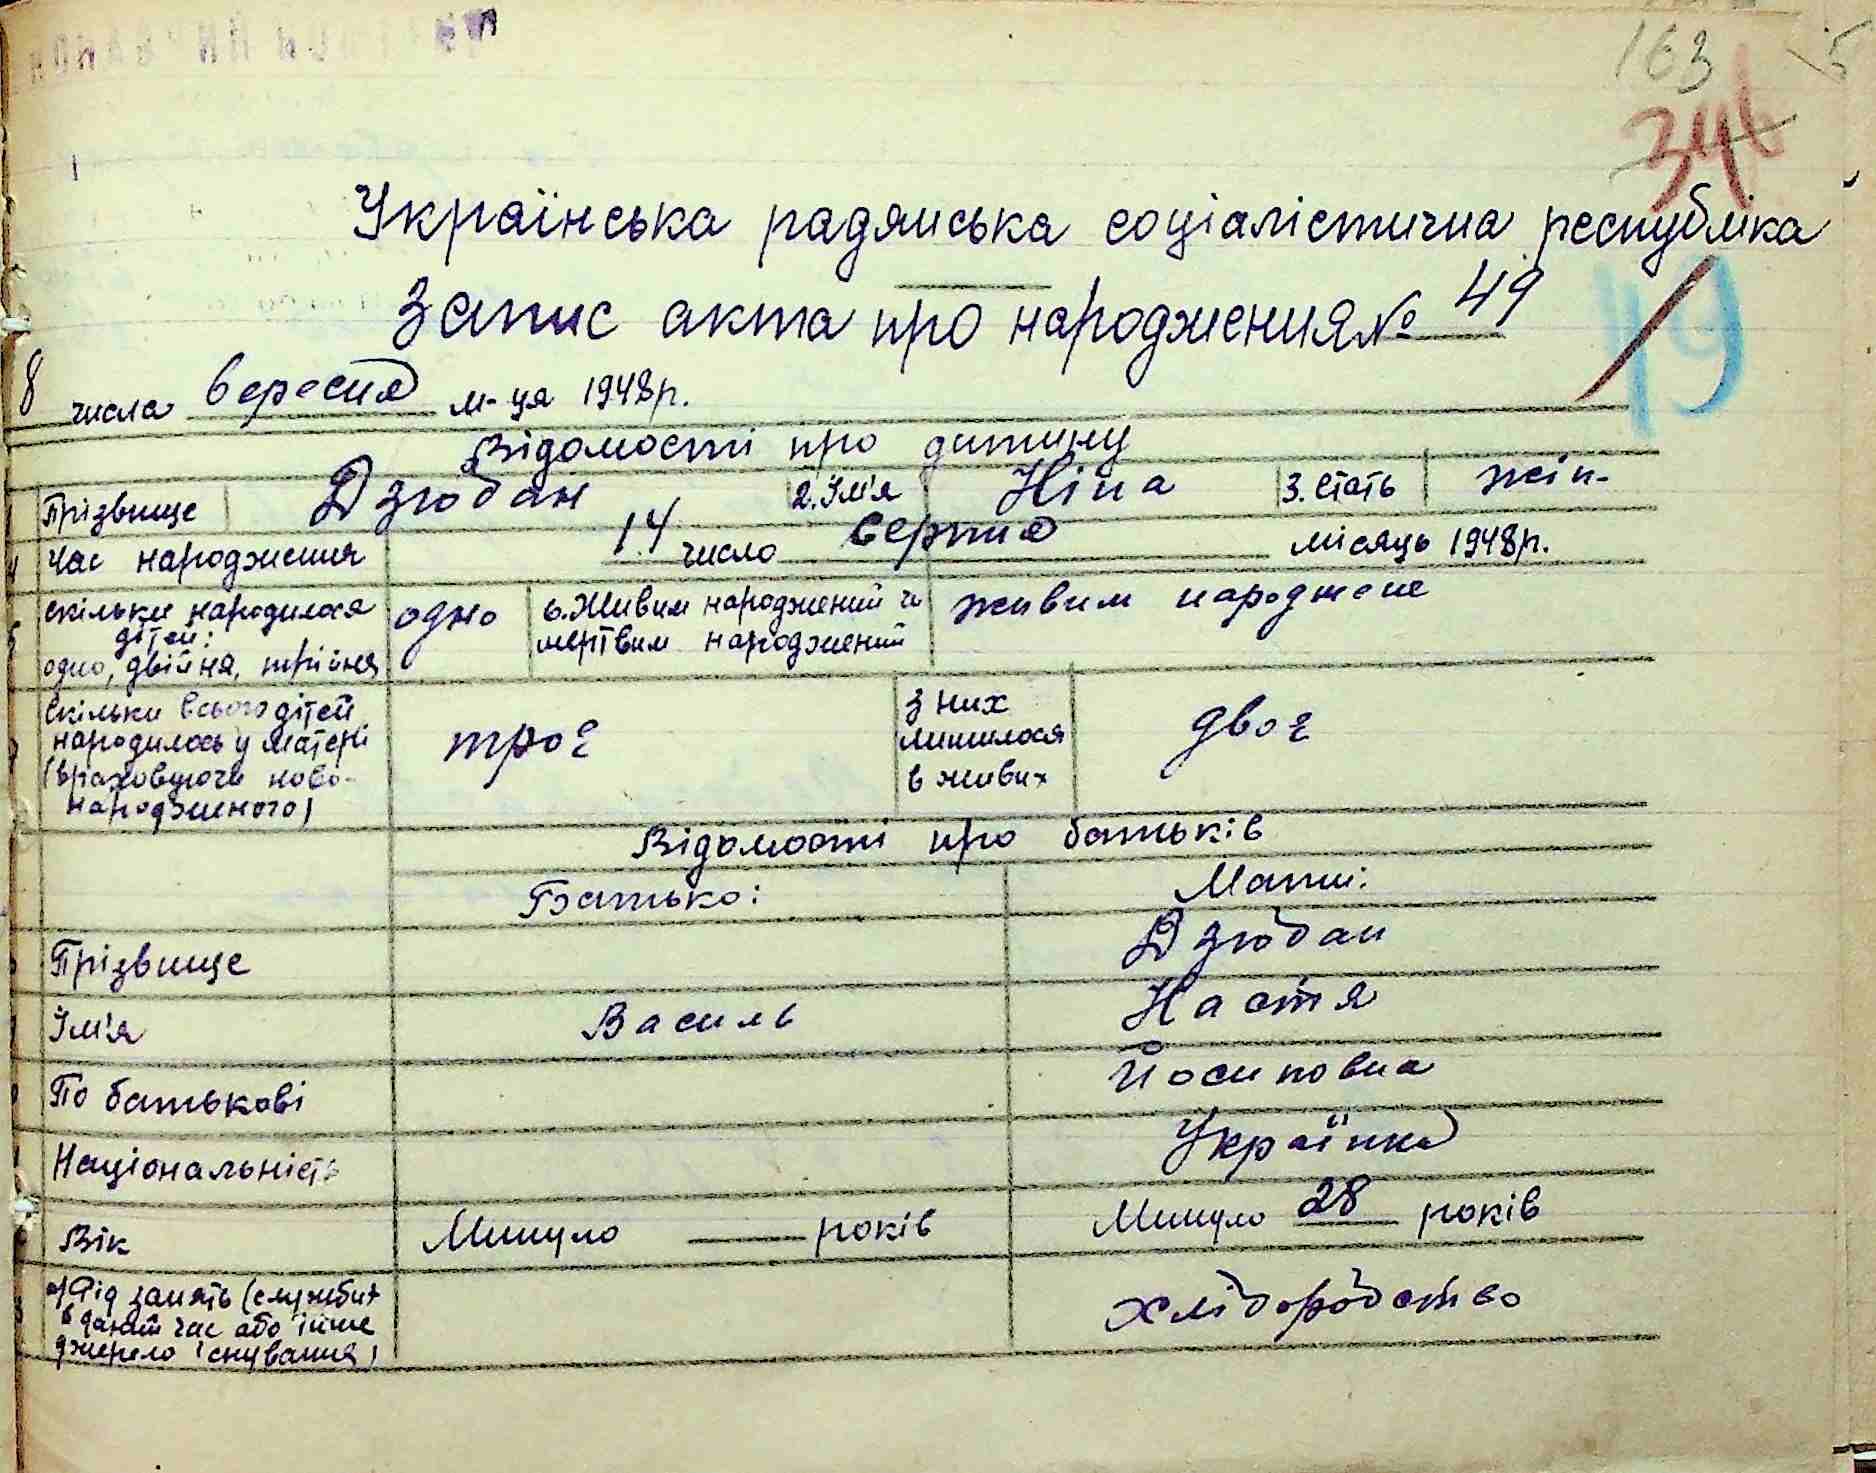 163
346
Українська радянська соціалістична республіка
Запис акта про народження № 49
19
8 числа вересня м-ця 1948р.
Відомості про дитину
Прізвище Дзюбан 2. Ім'я Ніна 3. Стать жін.
4 Час народження 14 число серпня місяць 1948р.
5 Скільки народилося дітей: одно, двійня, трійня одно 6. Живим народжений чи мертвим народжений живим народжене
7 Скільки всього дітей народилось у матері (враховуючи ново-народженого) троє З них лишилося в живих двоє
Відомості про батьків
Батько: Мати:
Прізвище Дзюбан
Ім'я Василь Настя
По батькові Йосиповна
Національність Українка
Вік Минуло — років Минуло 28 років
а) Рід занять (служби в даний час або інше джерело існування) хліборобство